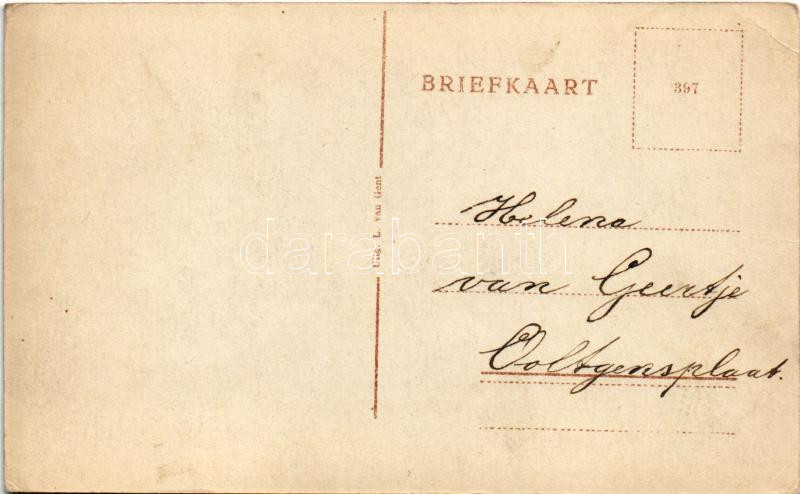 BRIEFKAART
397
Uitg. L. van Gent
Helena
van Geertje
Ooltgensplaat.
darabanth